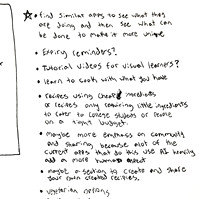 ☆• find similar apps to see what they
are doing and then see what can
be done to make it more unique
• Expiry reminders?
• Tutorial videos for visual learners?
• learn to cook with what you have
• recipes using cheap ingredients
or recipes only requiring little ingredients
to cater to college students or people
on a tight budget.
• maybe more emphasis on community
and sharing because alot of the
current apps that do this use AI heavily
add a more human aspect
• maybe a section to create and share
your own created recipes.
• vegetarian options